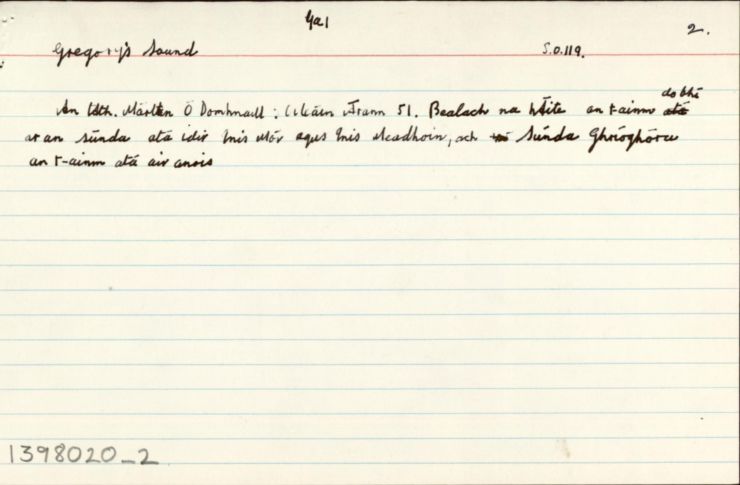 Gal
2.
Gregory's Sound S.O.119.
do bhí
An tAth. Mártan Ó Domhnaill: Oileáin Árann 51. Bealach na hÁite an t-ainm atá
ar an súnda atá idir Inis Mór agus Inis Meadhoin, ach Súnda Ghríoghóra
an t-ainm atá air anois
1398020_2